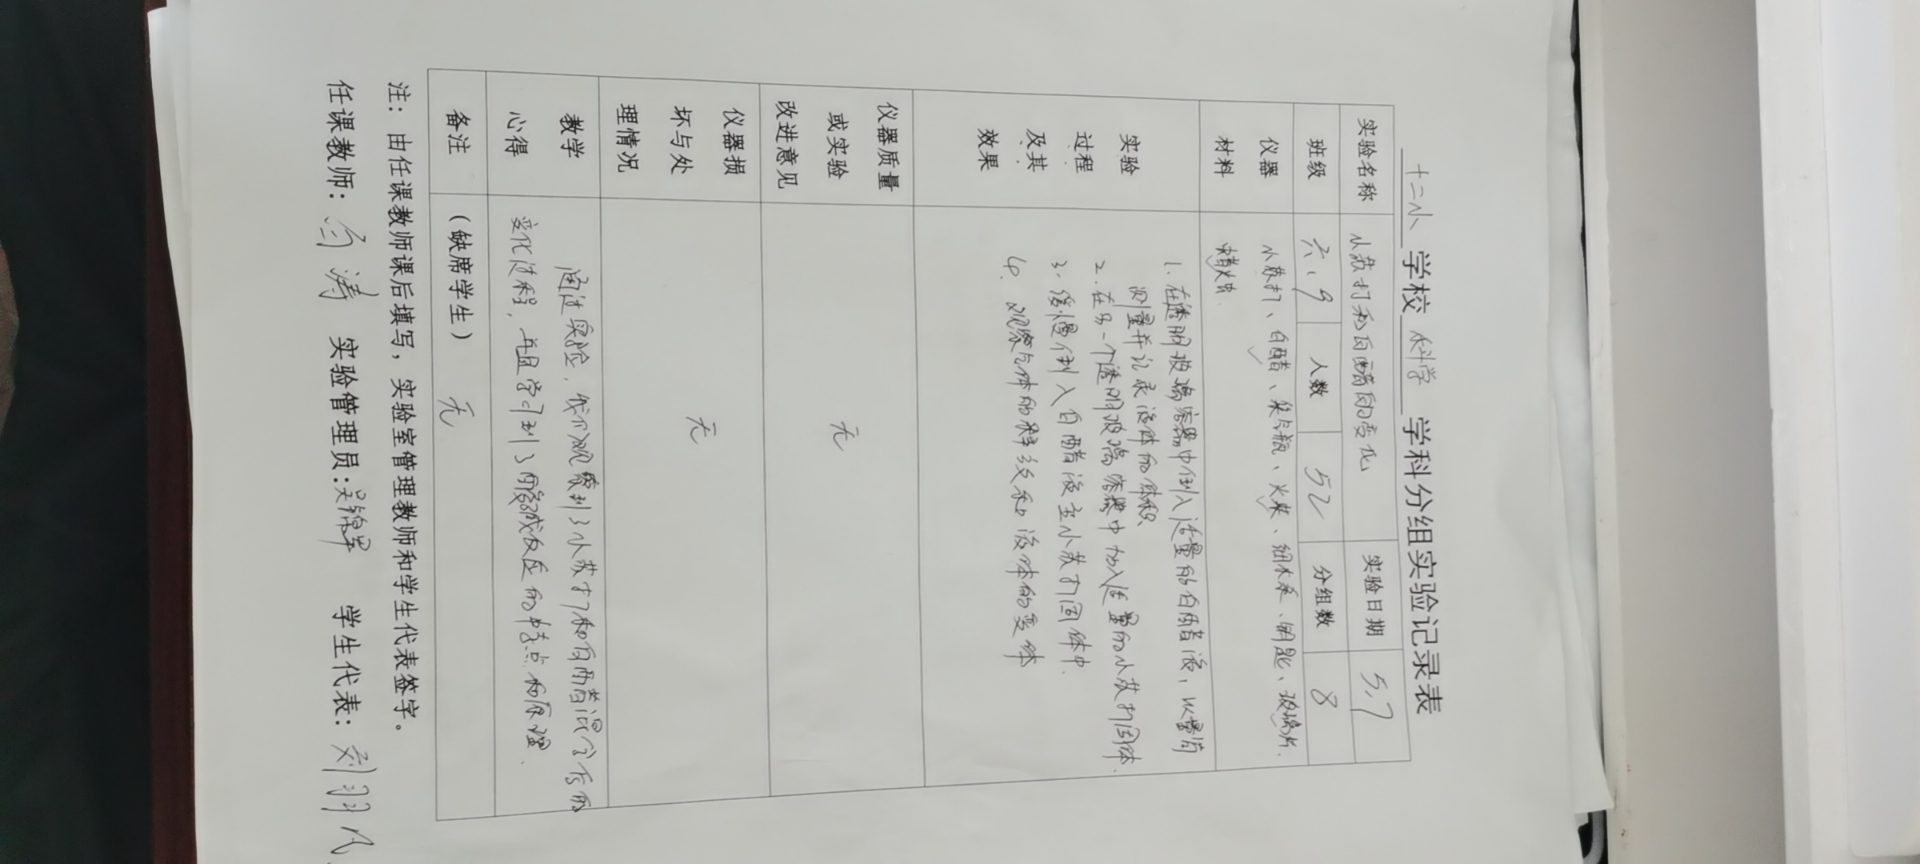 十二小 学校 科学 学科分组实验记录表
实验名称 小苏打和白醋的变化 实验日期 5.7
班级 六.9 人数 52 分组数 8
仪器材料 小苏打、白醋、集气瓶、火柴、细木条、钥匙、玻璃片、
蜡烛
实验过程及其效果
1. 在透明玻璃容器中倒入适量的白醋液，以量筒
测量并记录液体的体积
2. 在另一个透明玻璃容器中加入适量的小苏打固体.
3. 缓慢倒入白醋液至小苏打固体中.
4. 观察气体的释放和液体的变体
仪器质量或实验改进意见 无
仪器损坏与处理情况 无
教学心得
通过实验，我们观察到了小苏打和白醋混合后的
变化过程，并且学习到了酸碱反应的特点和原理.
备注 （缺席学生） 无
注：由任课教师课后填写，实验室管理教师和学生代表签字。
任课教师： 涛 实验管理员： 学生代表：刘羽凡